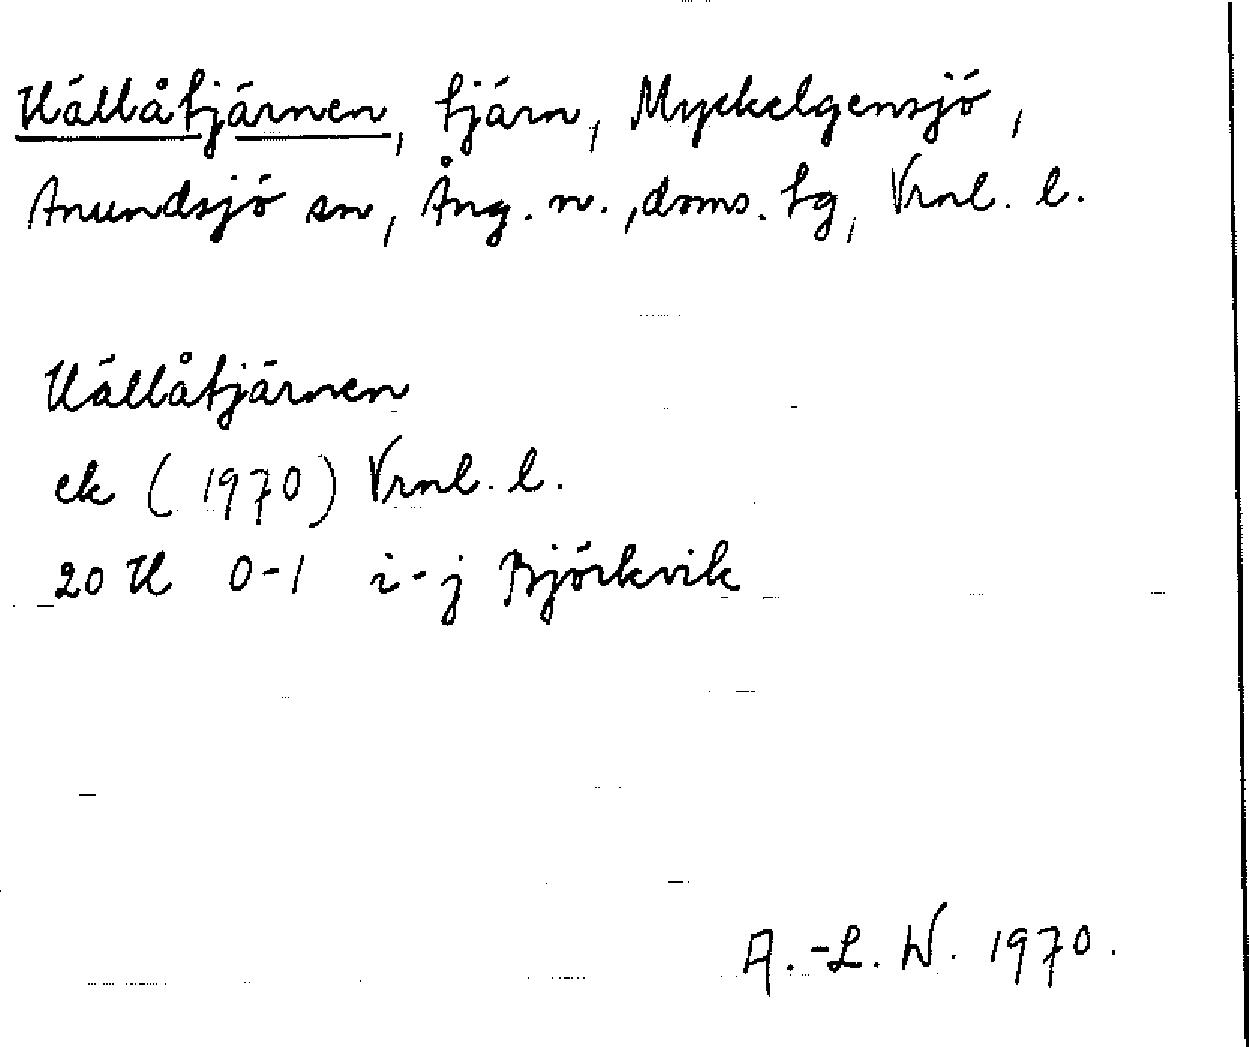 Hällåtjärnen, tjärn, Myckelgensjö,
Anundsjö sn, Ång. n., doms. tg, Vrnl. l.
Hällåtjärnen
ek (1970) Vrnl. l.
20 H 0-1 i-j Björkvik
A.-L. W. 1970.